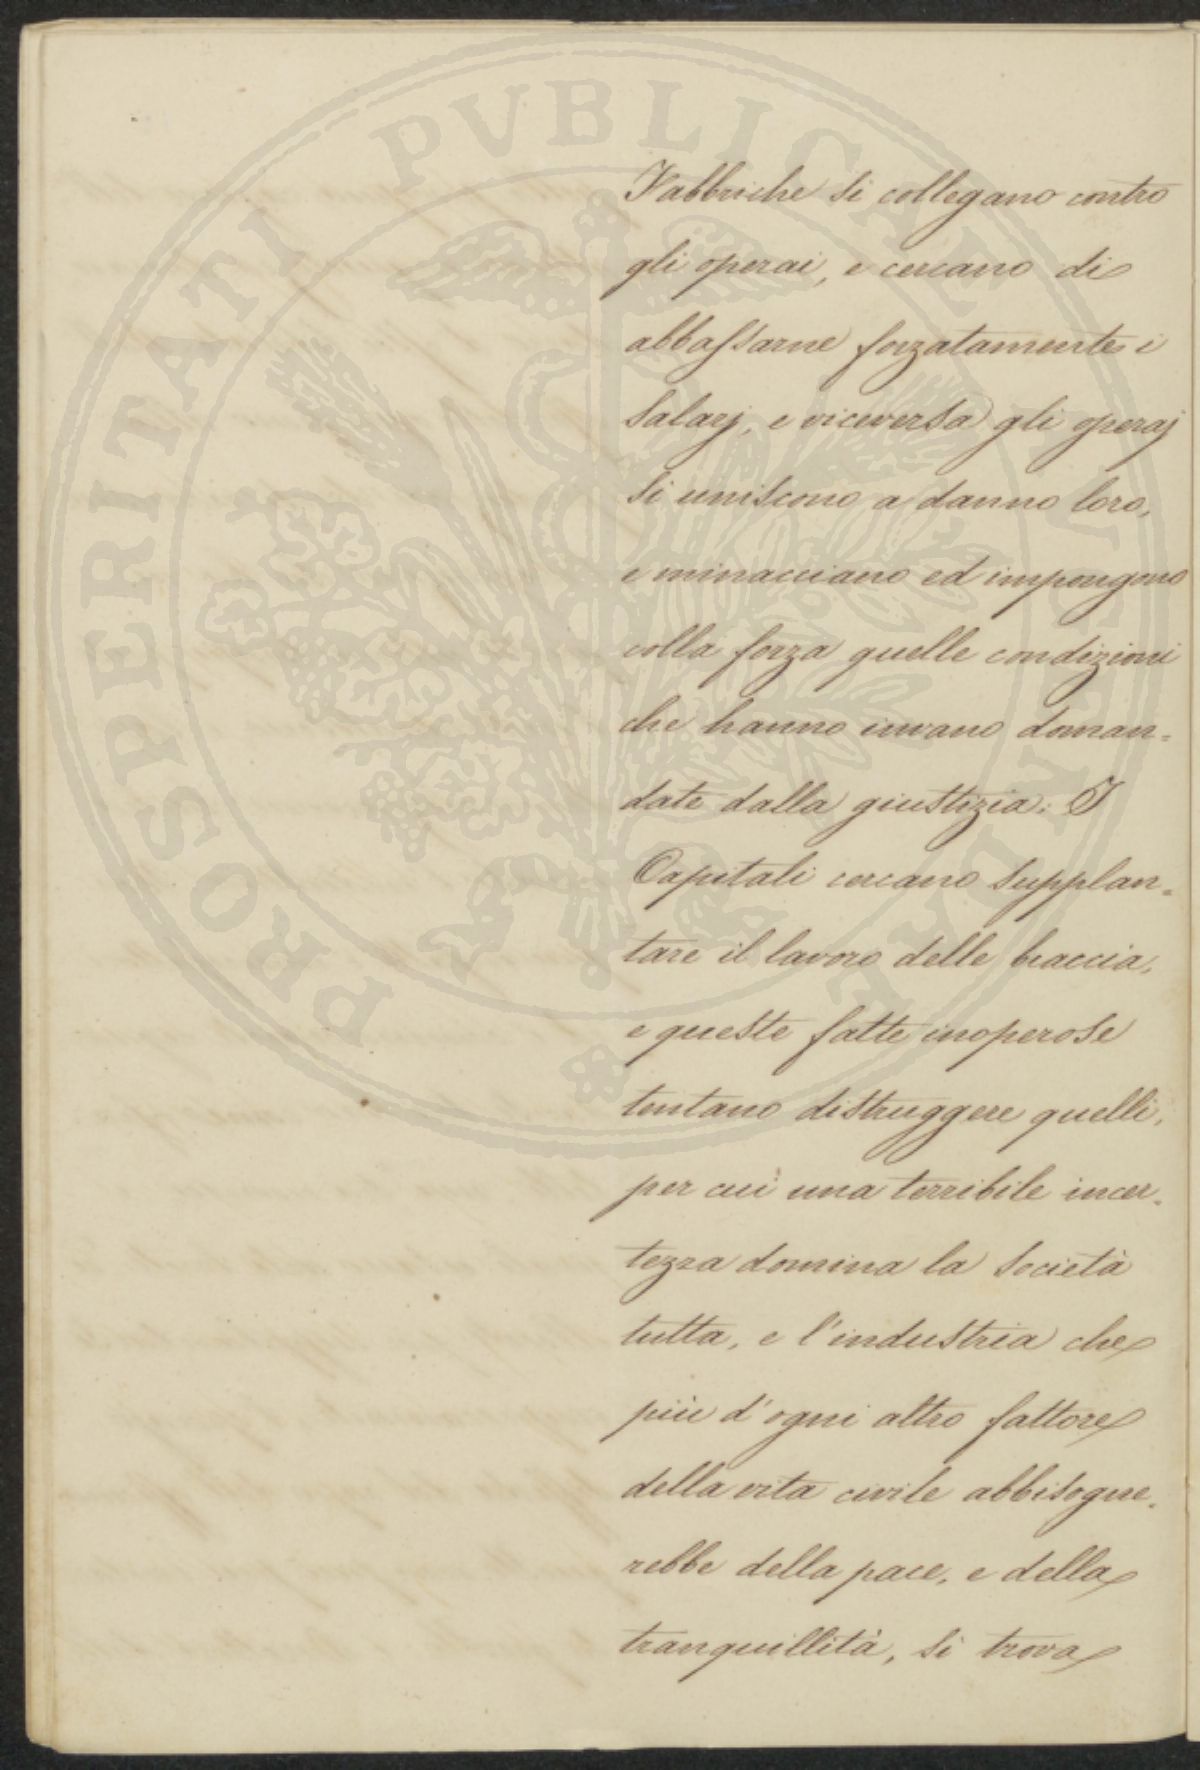 Fabbriche si collegano contro
gli operai, e cercano di
abbassarne forzatamente i
salarj, e viceversa gli operaj
si uniscono a danno loro,
e minacciano ed impongono
colla forza quelle condizioni
che hanno invano doman=
date dalla giustizia: I
Capitali cercano supplan=
tare il lavoro delle braccia,
e queste fatte inoperose
tentano distruggere quelli,
per cui una terribile incer=
tezza domina la società
tutta, e l'industria che
più d'ogni altro fattore
della vita civile abbisogne=
rebbe della pace, e della
tranquillità, si trova
PROSPERITATI PVBLICAE AVGENDAE